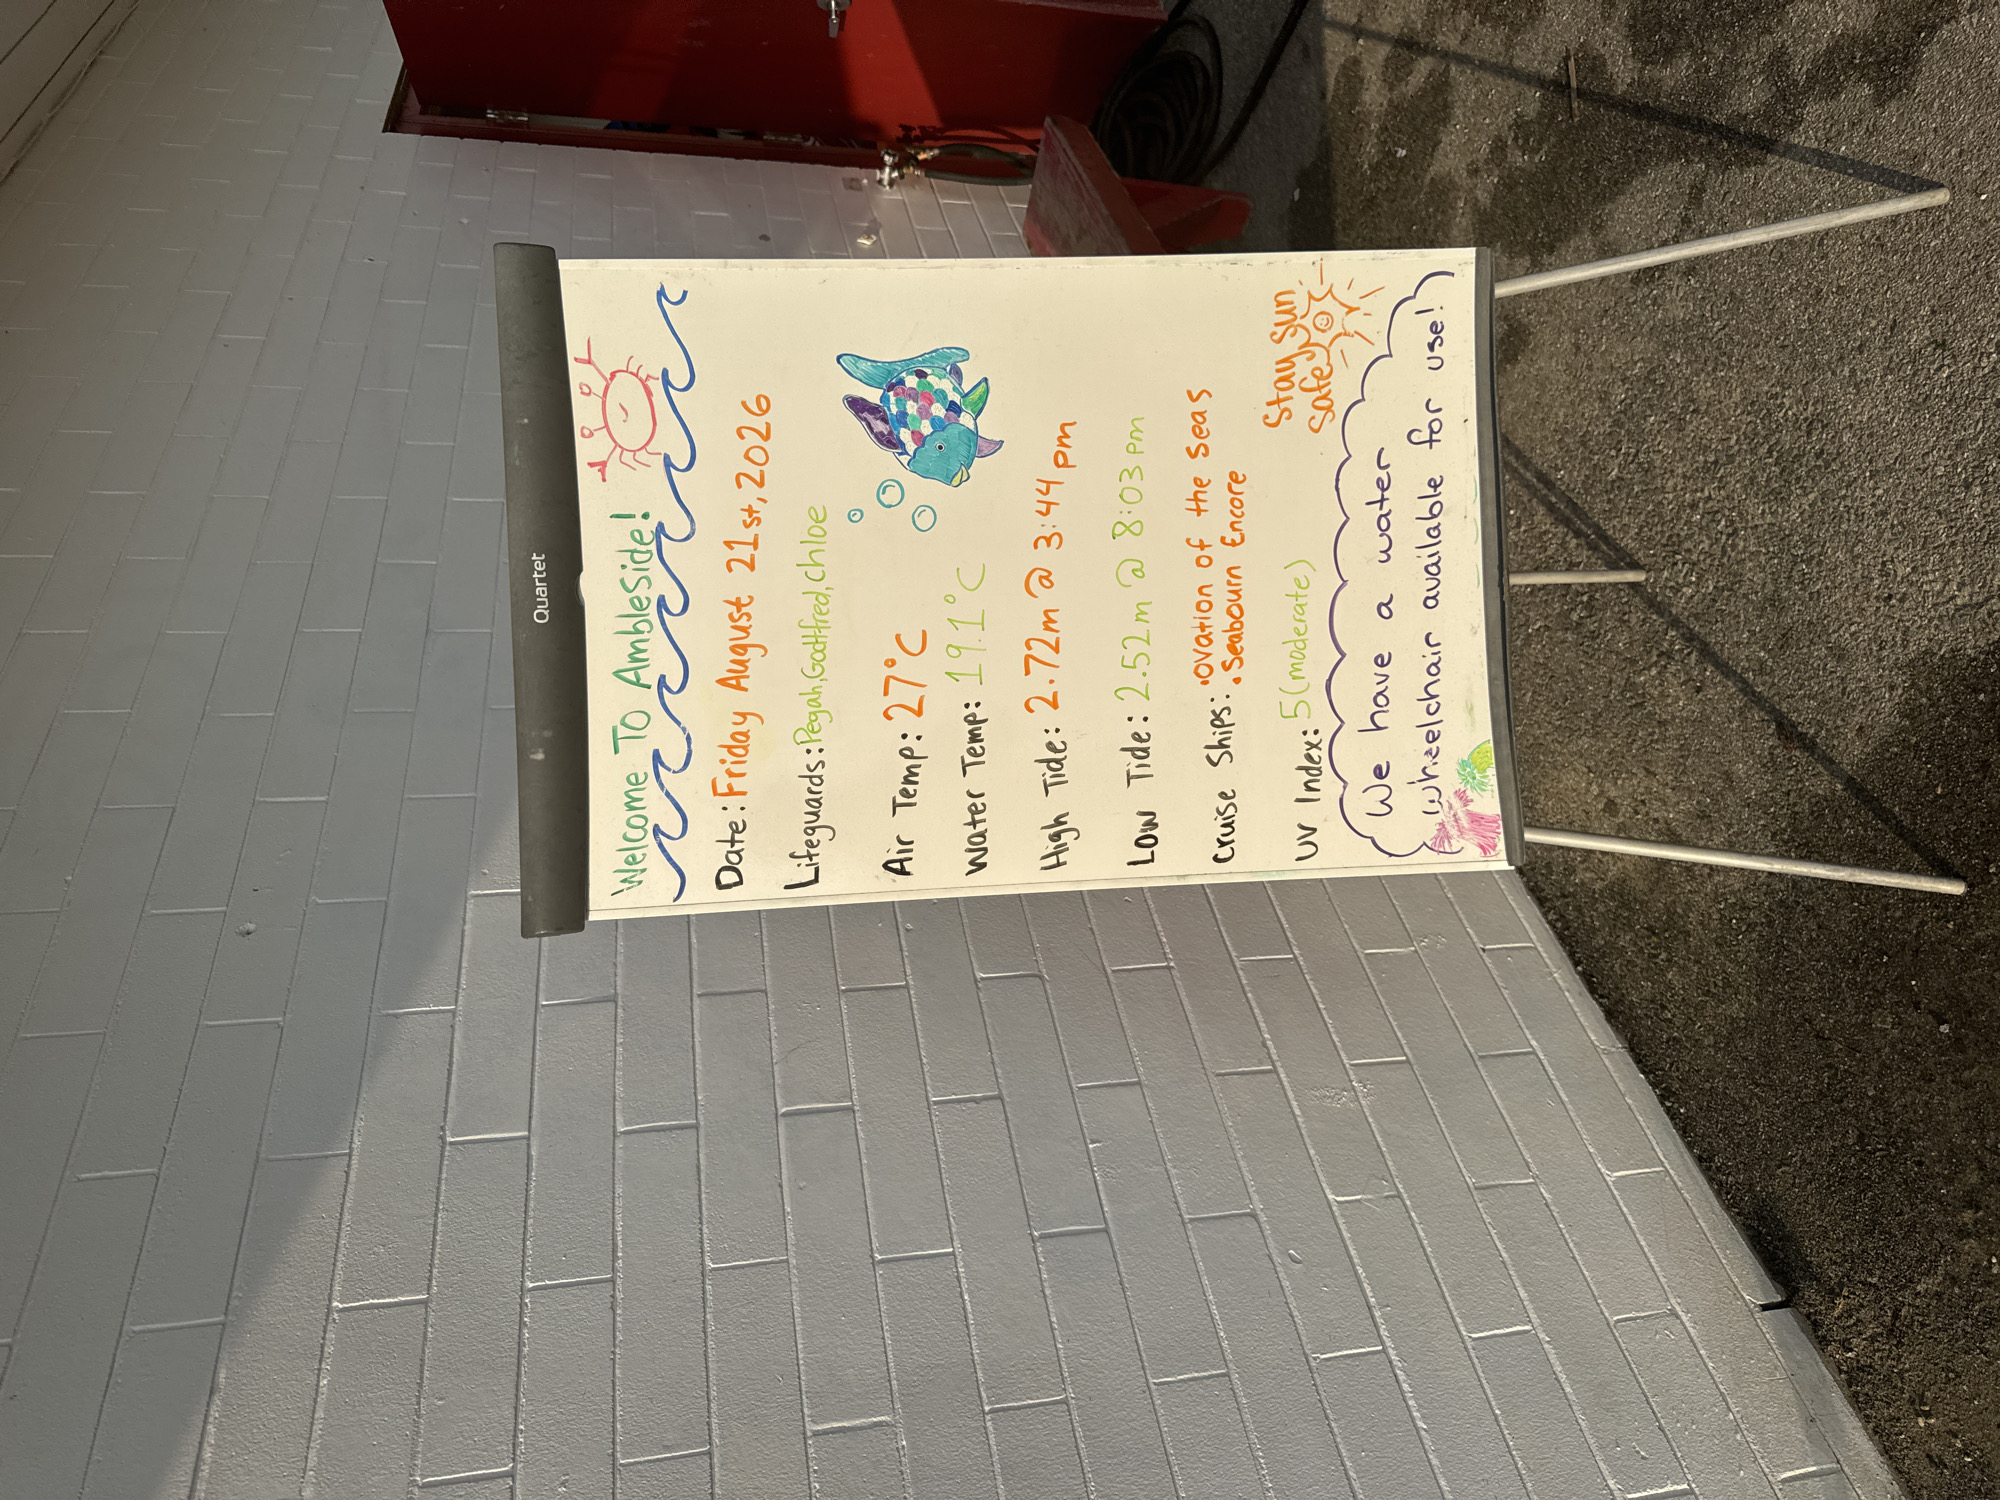 Quartet
Welcome To Ambleside!
Date: Friday August 21st, 2026
Lifeguards: Pegah, Gottfred, Chloe
Air Temp: 27°C
Water Temp: 19.1°C
High Tide: 2.72m @ 3:44 pm
Low Tide: 2.52m @ 8:03 pm
Cruise Ships: •Ovation of the Seas
•Seabourn Encore
UV Index: 5 (moderate)
Stay Sun
Safe
We have a water
wheelchair available for use!